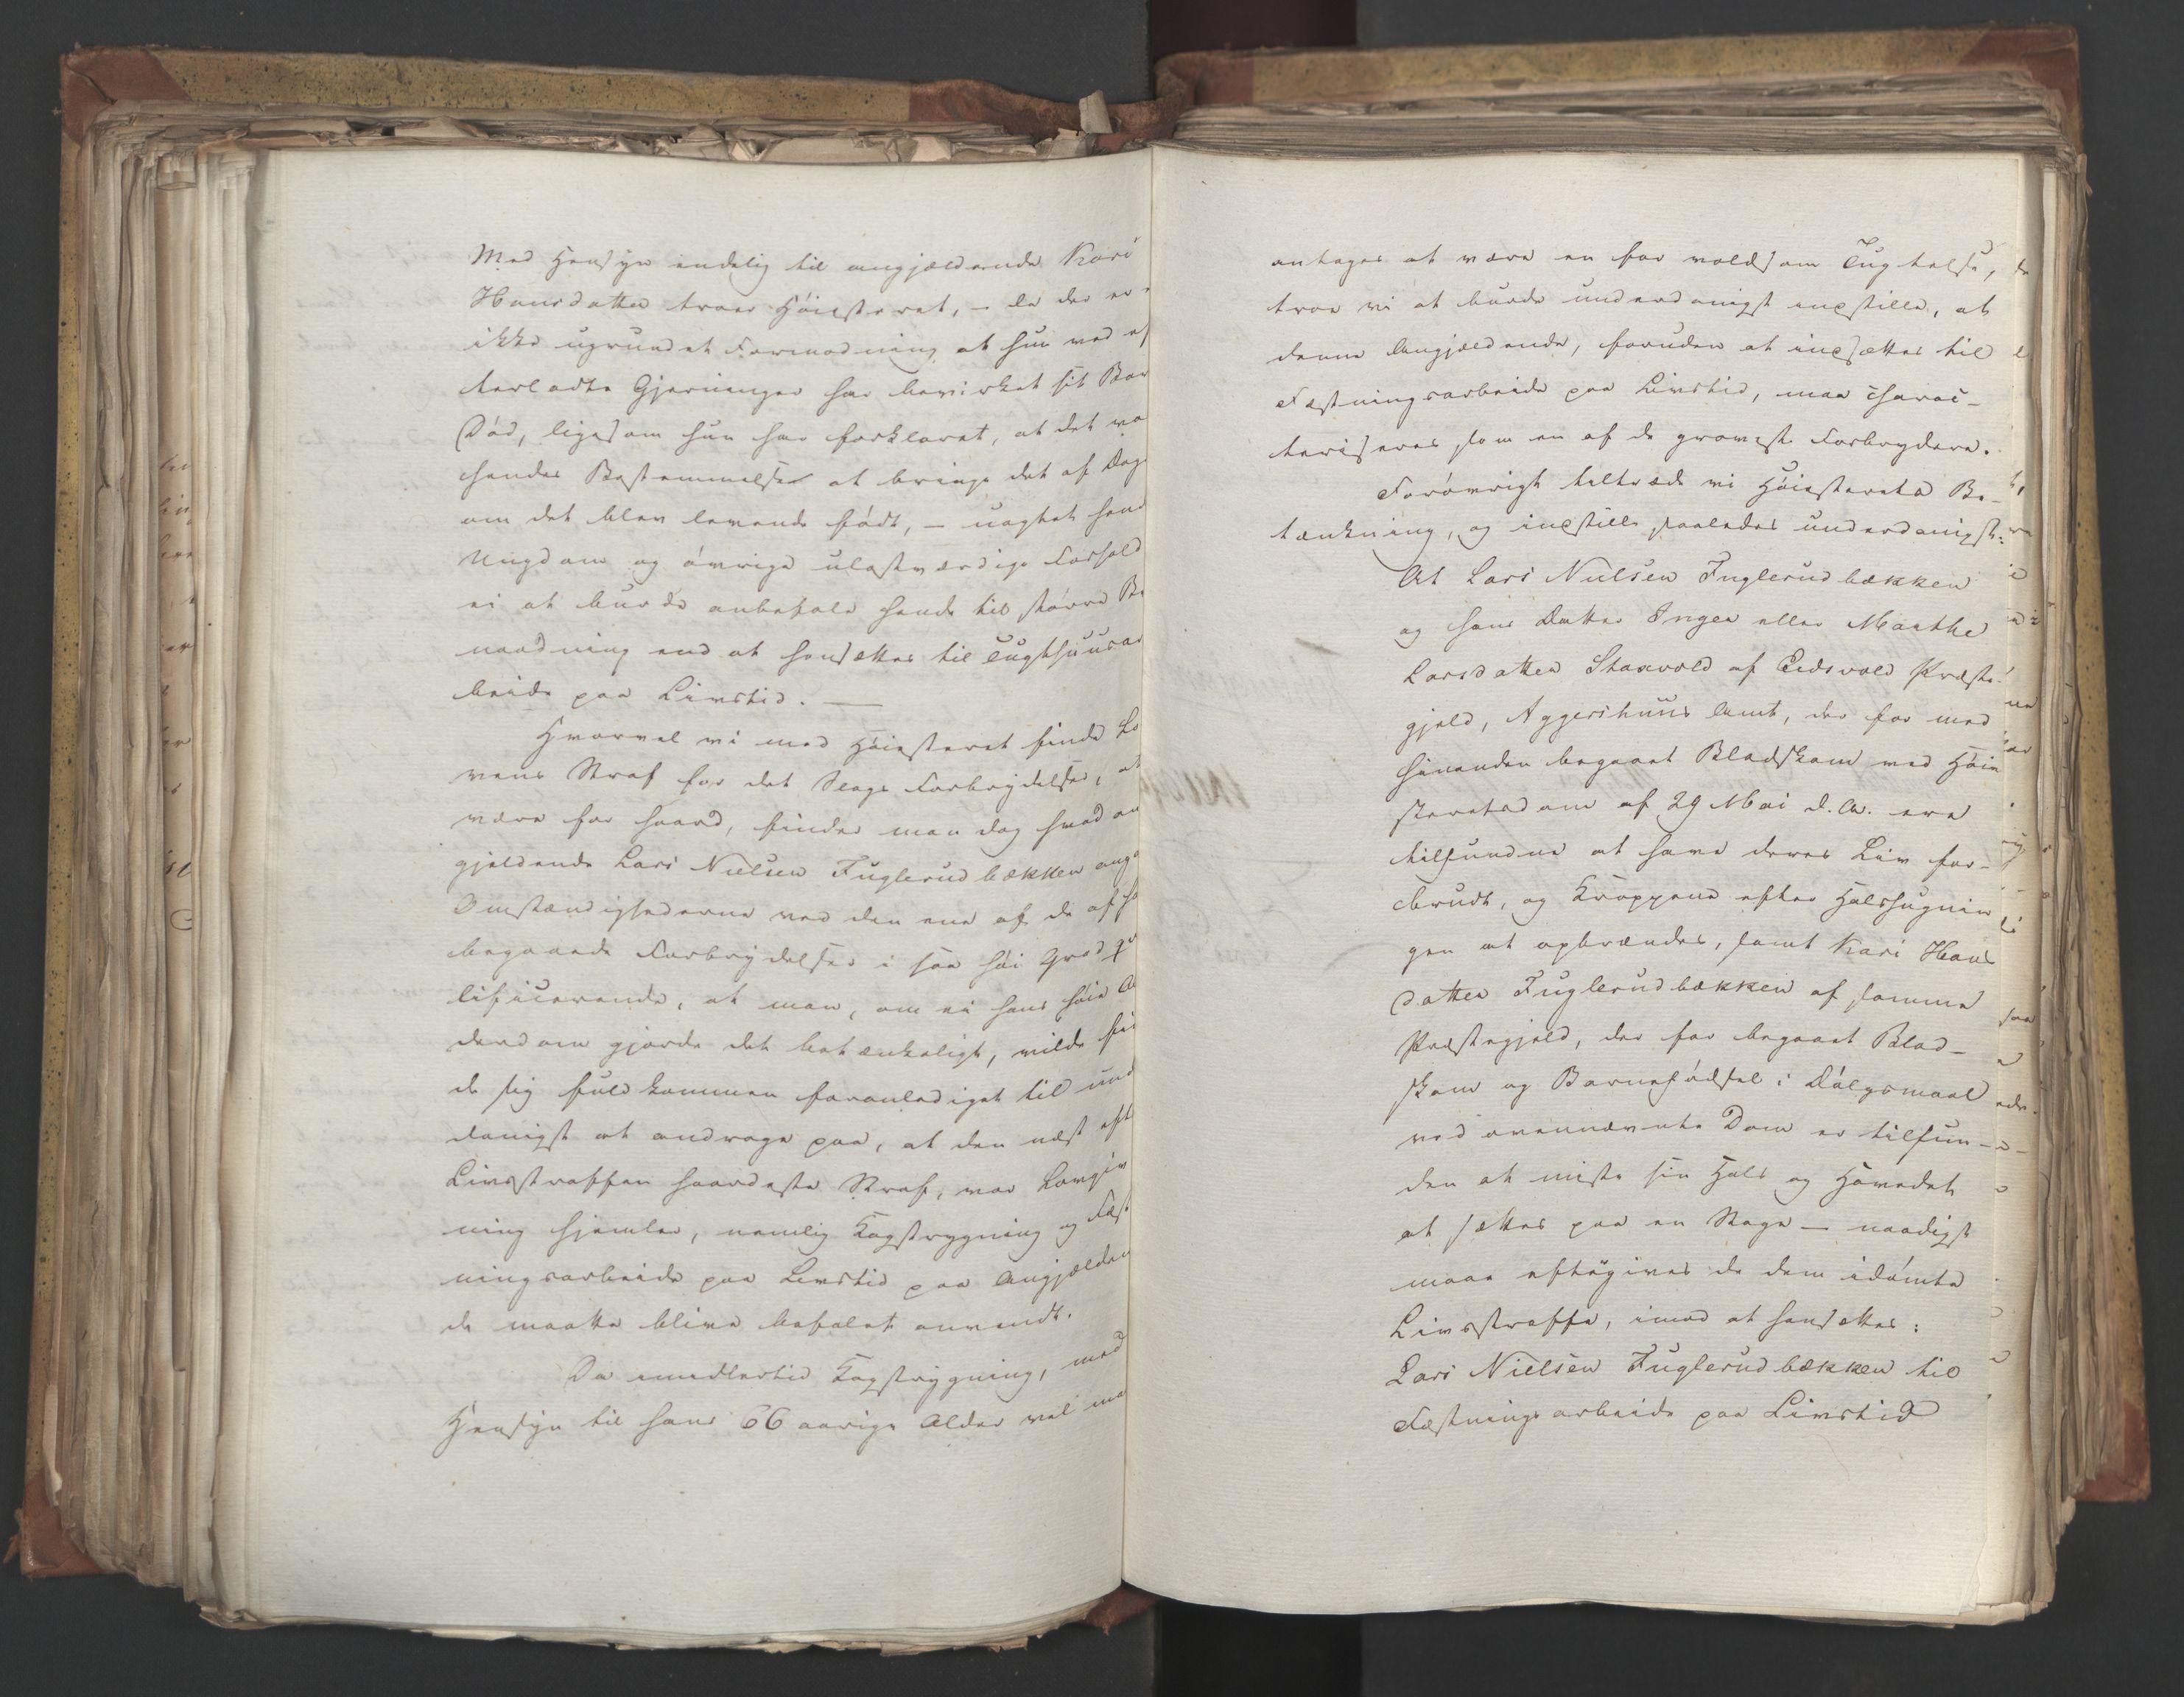 Med Hensyn endelig til angjældende Kari
Hansdatter troer Höiesteret, – da der er
ikke ugrundet Formodning at hun ved ef
terladte Gjerninger har bevirket sit Bar
Död, ligesom hun har forklaret, at det va
hendes Bestemmelse at bringe det af Dage
om det blev levende födt, – uagtet hend
Ungdom og övrige ulastværdige Forhold
ei at burde anbefale hende til större Be
naadning end at hensættes til Tugthuusar
beide paa Livstid. —
Hvorvel vi med Höiesteret finde Lo
vens Straf for det Slags Forbrydelser, at
være for haard, finder man dog hvad an
gjeldende Lars Nielsen Fuglerudbækken angaa
Omstændighederne ved den ene af de af ha
begaaede Forbrydelser i saa höi Grad qva
lificerende, at man, om ei hans höie Al
derdom gjorde det betænkeligt, vilde fin
de sig fuldkommen foranlediget til und
danigst at andrage paa, at den næst eft
Livsstraffen haardeste Straf, vor Lovgiv
ning hjemler, nemlig Kagstrygning og Fæst
ningsarbeide paa Livstid paa Angjælden
de maatte blive befalet anvendt.
Da imidlertid Kagstrygning, med
Hensyn til hans 66 aarige Alder vel maa
antages at være en for voldsom Tugtelse,
troe vi at burde underdanigst indstille, at
denne Angjældende, foruden at indsættes til
Fæstningsarbeide paa Livstid, maa charac-
teriseres som en af de groveste Forbrydere.
Forövrigt tiltræde vi Höiesterets Be-
tænkning, og indstille saaledes underdanigst:
At Lars Nielsen Fuglerudbækken
og hans Datter Inger eller Marthe
Larsdatter Staxvold af Eidsvold Præste-
gjeld, Aggershuus Amt, der for med
hinanden begaaet Blodskam ved Höie
steretsdom af 29 Mai d. A. ere
tilfundne at have deres Liv for-
brudt, og Kroppene efter Halshugnin
gen at opbrændes, samt Kari Hans
datter Fuglerudbækken af samme
Præstegjeld, der for begaaet Blod-
skam og Barnefödsel i Dölgsmaal
ved ovennævnte Dom er tilfun-
den at miste sin Hals og Hovedet
at sættes paa en Stage — naadigst
maae eftergives de dem idömte
Livsstraffe, imod at hensættes:
Lars Nielsen Fuglerudbækken til
Fæstningsarbeide paa Livstid